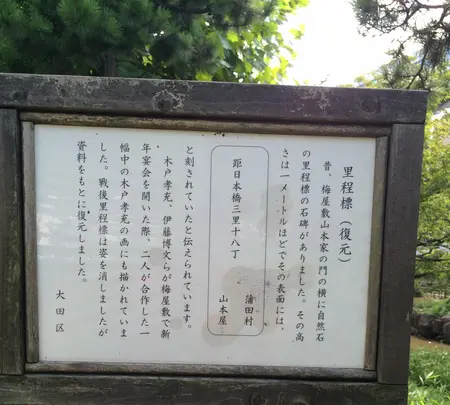 里程標(復元)
昔、梅屋敷山本家の門の横に自然石
の里程標の石碑がありました。その高
さは一メートルほどでその表面には、
距日本橋三里十八丁
蒲田村
山本屋
と刻されていたと伝えられています。
木戸孝充、伊藤博文らが梅屋敷で新
年宴会を開いた際、二人が合作した一
幅中の木戸孝充の画にも描かれていま
した。戦後里程標は姿を消しましたが
資料をもとに復元しました。
大田区